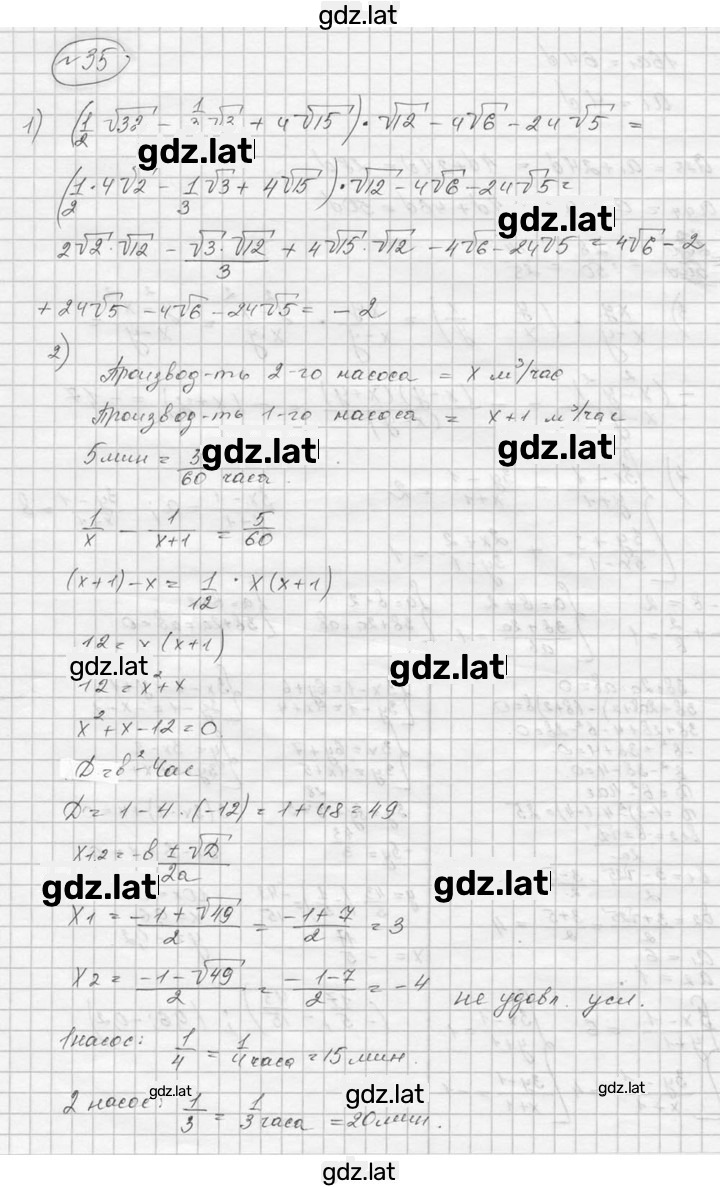 gdz.lat
№35
1) (1/2 √32 − 1/3 √3 + 4√15) · √12 − 4√6 − 24√5 =
gdz.lat
(1/2 · 4√2 − 1/3 √3 + 4√15) · √12 − 4√6 − 24√5 =
gdz.lat
2√2 · √12 − √3 · √12/3 + 4√15 · √12 − 4√6 − 24√5 = 4√6 − 2
+ 24√5 − 4√6 − 24√5 = − 2
2)
Производ-ть 2-го насоса = x м³/час
Производ-ть 1-го насоса = x+1 м³/час
gdz.lat gdz.lat
5 мин = /60 часа.
1/x − 1/(x+1) = 5/60
(x+1) − x = 1/12 · x(x+1)
12 = x(x+1)
gdz.lat gdz.lat
12 = x² + x
x² + x − 12 = 0.
D = b² − 4ac
D = 1 − 4 · (−12) = 1 + 48 = 49.
x1,2 = −b ± √D/2a
gdz.lat gdz.lat
x1 = −1 + √49/2 = −1 + 7/2 = 3
x2 = −1 − √49/2 = −1−7/2 = −4 не удовл. усл.
1 насос: 1/4 = 1/4 часа = 15 мин.
gdz.lat gdz.lat gdz.lat
2 насос: 1/3 = 1/3 часа = 20 мин.
gdz.lat